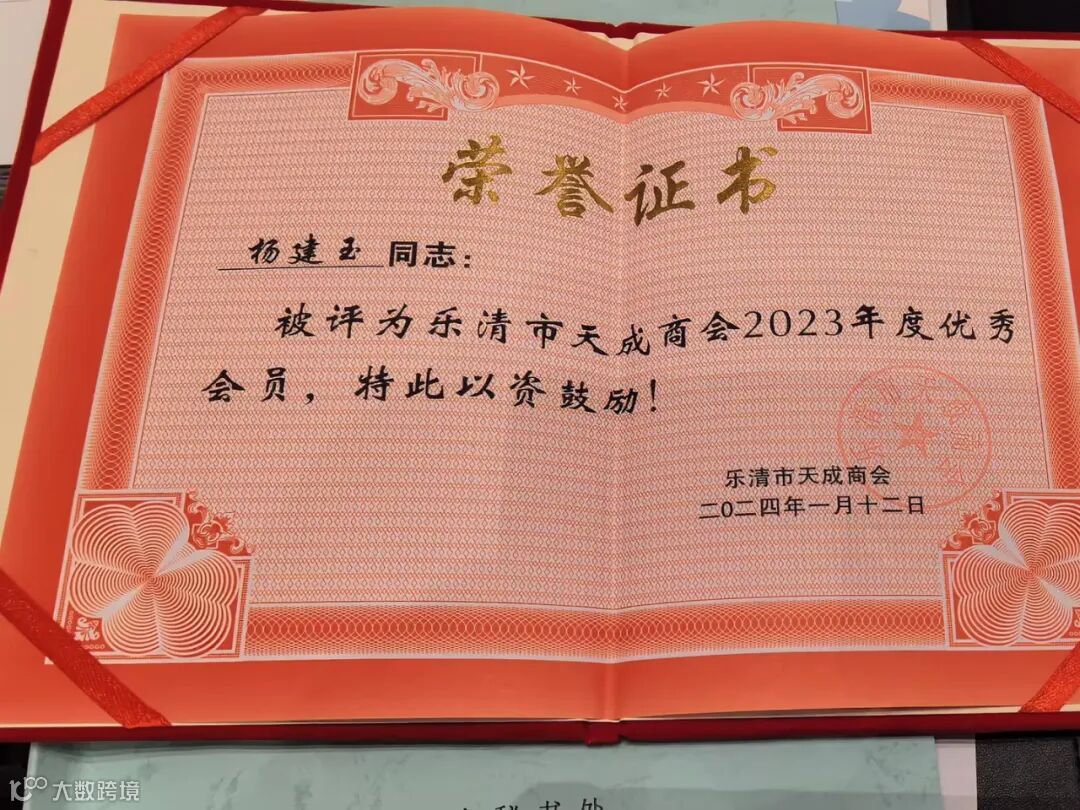 荣誉证书
杨建玉 同志：
被评为乐清市天成商会2023年度优秀
会员，特此以资鼓励！
乐清市天成商会
二0二四年一月十二日
大数跨境